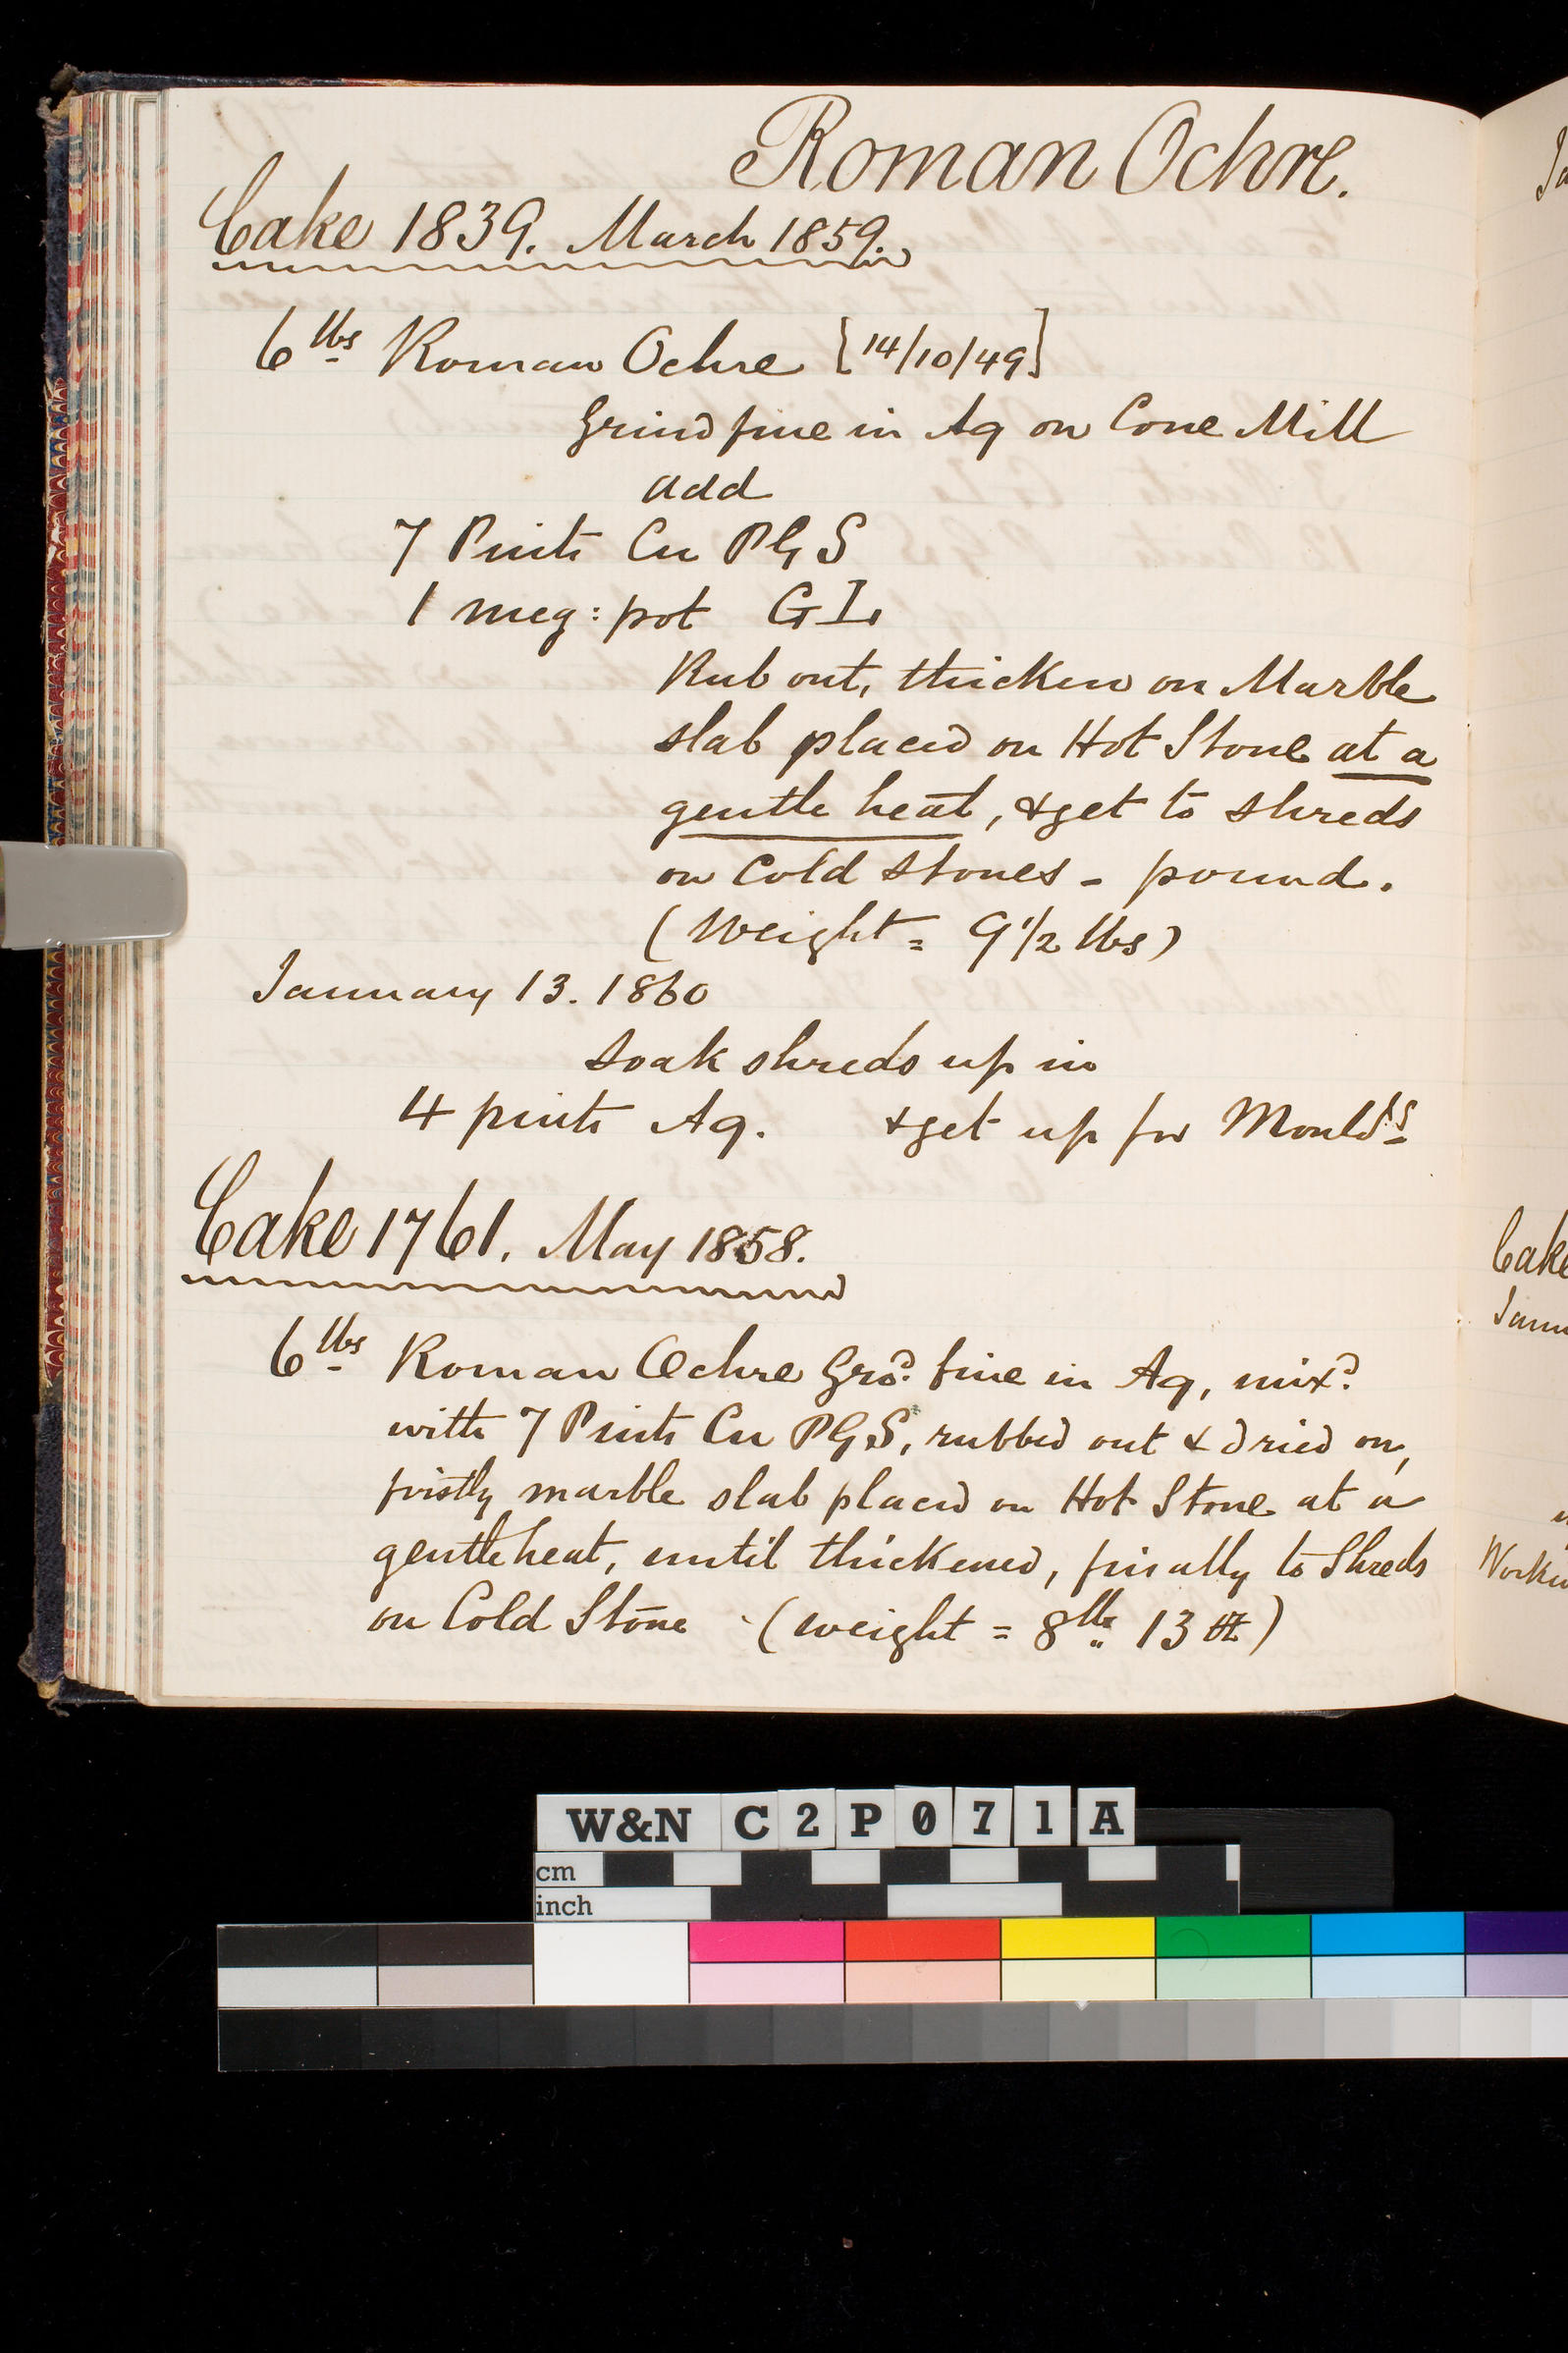 Roman Ochre.
Cake 1839. March 1859.
6 lbs Roman Ochre [14/10/49]
Grind fine in Aq on Cone Mill
add
7 Pints Cu PGS
1 meg: pot GL
Rub out, thicken on Marble
slab placed on Hot Stone at a
gentle heat, & get to shreds
on Cold Stones - pound.
(Weight = 9 1/2 lbs)
January 13. 1860
Soak shreds up in
4 pints Aq. & get up for Mouldg
Cake 1761. May 1858.
6 lbs Roman Ochre Grd. fine in Aq, mixd.
with 7 Pints Cu PGS, rubbed out & dried on,
firstly marble slab placed on Hot Stone at a
gentle heat, until thickened, finally to Shreds
on Cold Stone (weight = 8 lbs 13 oz)
Cake
W&N C2P071A
cm
inch